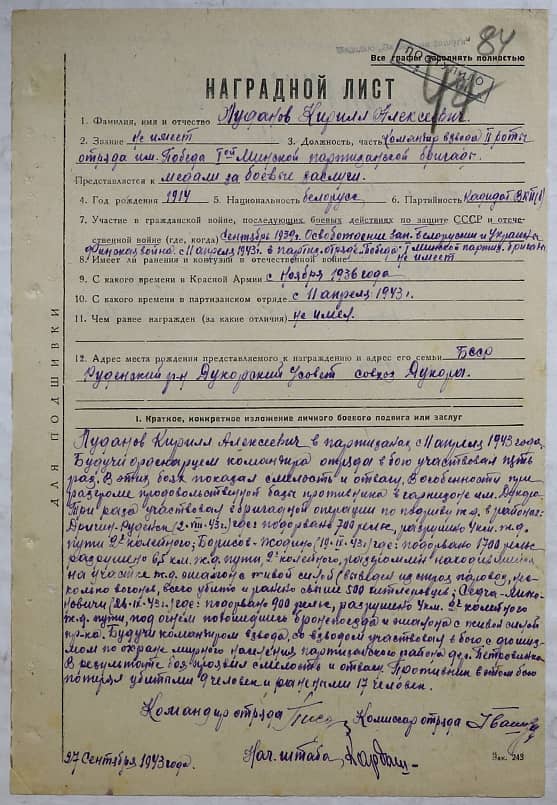 84
Все графы заполнять полностью
НАГРАДНОЙ ЛИСТ
1. Фамилия, имя и отчество Луданов Кирилл Алексеевич.
2. Звание не имеет 3. Должность, часть Командир взвода II роты
отряда им. Победа Минской партизанской бригады.
Представляется к медали за боевые заслуги.
4. Год рождения 1914 5. Национальность белорусс 6. Партийность
7. Участие в гражданской войне, последующих боевых действиях по защите СССР и отече-
ственной войне (где, когда) Сентябрь 1939г. Освобождении Зап. Белоруссии и Украины
Финская война. с 11 апреля 1943г. в партиз. отряде "Победа" I Минской партиз. бригады
8. Имеет ли ранения и контузии в отечественной войне не имеет
9. С какого времени в Красной Армии с Ноября 1936 года
10. С какого времени в партизанском отряде с 11 апреля 1943г.
11. Чем ранее награжден (за какие отличия) не имел.
12. Адрес места рождения представляемого к награждению и адрес его семьи БССР
Руденский р-н Дукорский с/совет совхоз Дукора.
ДЛЯ ПОДШИВКИ
I. Краткое, конкретное изложение личного боевого подвига или заслуг
Луданов Кирилл Алексеевич в партизанах с 11 апреля 1943 года,
Будучи командира отряда в бою участвовал пять
раз. В этих боях показал смелость и отвагу. В особенности при
разгроме продовольственной базы противника в гарнизоне
Три раза участвовал в операции по подрыву ж.д. в районах:
Руденск (2-VIII-43г.) где: подорвано 700 рельс, разрушено 4 км. ж.д.
пути 2х колейного; Борисов-Жодино (19-IX-43г.) где: подорвано 1700 рельс
разрушено 6,5 км. ж.д. пути, 2х колейного,
на участке ж.д. эшелона с живой силой (выведен из строя паровоз, нес-
колько вагонов, всего убито и ранено свыше 500 гитлеровцев;
новичи где: подорвано 900 рельс, разрушено 4 км. 2х колейного
ж.д. пути, под огнём бронепоезда и эшелона с живой силой
пр-ка. Будучи командиром взвода, со взводом участвовал в бою с
по охране мирного населения партизанского района дер.
В результате боя проявил смелость и отвагу. Противник в этом бою
потерял убитыми 9 человек и ранеными 17 человек.
Командир отряда Комиссар отряда
27 Сентября 1943 года. Нач. штаба
Зак. 243